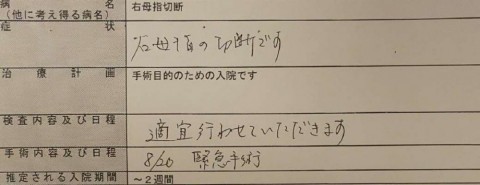 病 名 右母指切断
(他に考え得る病名)
症 状
右母指の切断です
治 療 計 画 手術目的のための入院です
検査内容及び日程 適宜行わせていただきます
手術内容及び日程 8/20 緊急手術
推定される入院期間 ～2週間